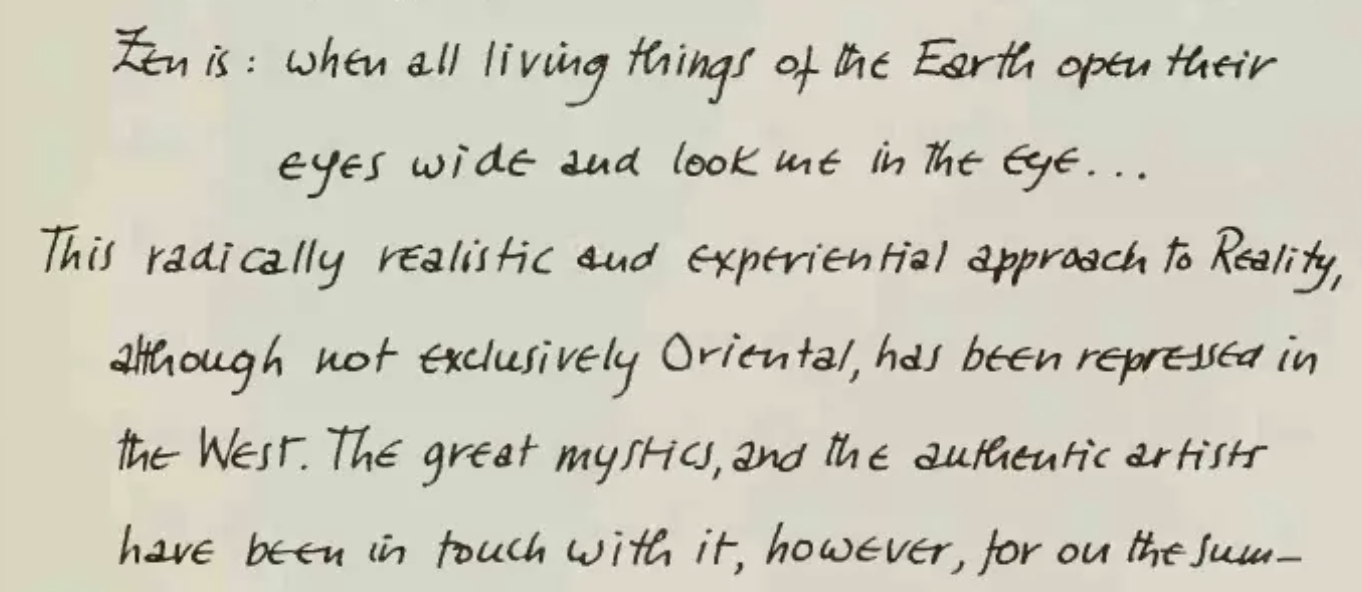 Zen is: when all living things of the Earth open their
eyes wide and look me in the eye...
This radically realistic and experiential approach to Reality,
although not exclusively Oriental, has been repressed in
the West. The great mystics, and the authentic artists
have been in touch with it, however, for on the sum-